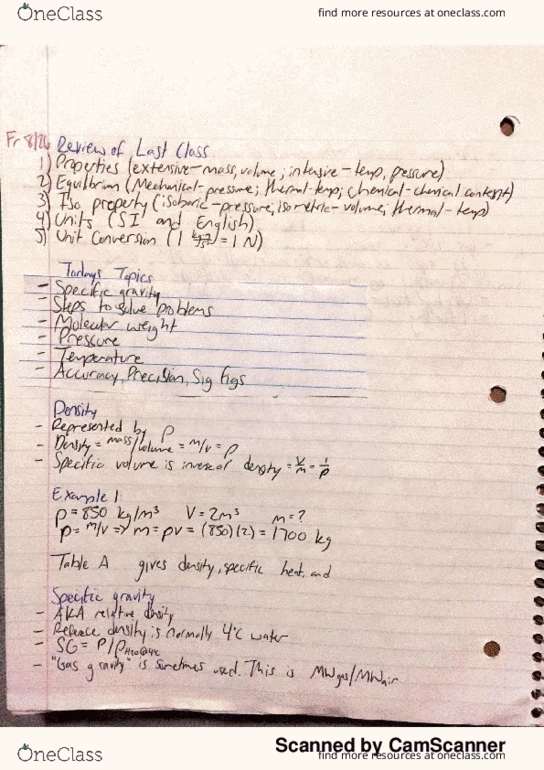 OneClass
find more resources at oneclass.com
Fr 8/26 Review of Last Class
1) Properties (extensive-mass, volume; intensive-temp, pressure)
2) Equilibrium (Mechanical-pressure; thermal-temp; chemical-chemical content)
3) Iso property (isobaric-pressure; isometric-volume; thermal-temp)
4) Units (SI and English)
5) Unit Conversion (1 = 1 N)
Todays Topics
- Specific gravity
- Steps to solve problems
- Molecular weight
- Pressure
- Temperature
- Accuracy, Precision, Sig figs
Density
- Represented by ρ
- Density = mass/volume = m/v = ρ
- Specific volume is inverse of density = V/m = 1/ρ
Example 1
ρ = 850 kg/m³ V = 2m³ m = ?
ρ = m/v => m = ρv = (850)(2) = 1700 kg
Table A gives density, specific heat, and
Specific gravity
- AKA relative density
- Reference density is normally 4°C water
- SG = ρ/ρH2O@4°C
- "Gas gravity" is sometimes used. This is MWgas/MWair
OneClass
Scanned by CamScanner
find more resources at oneclass.com